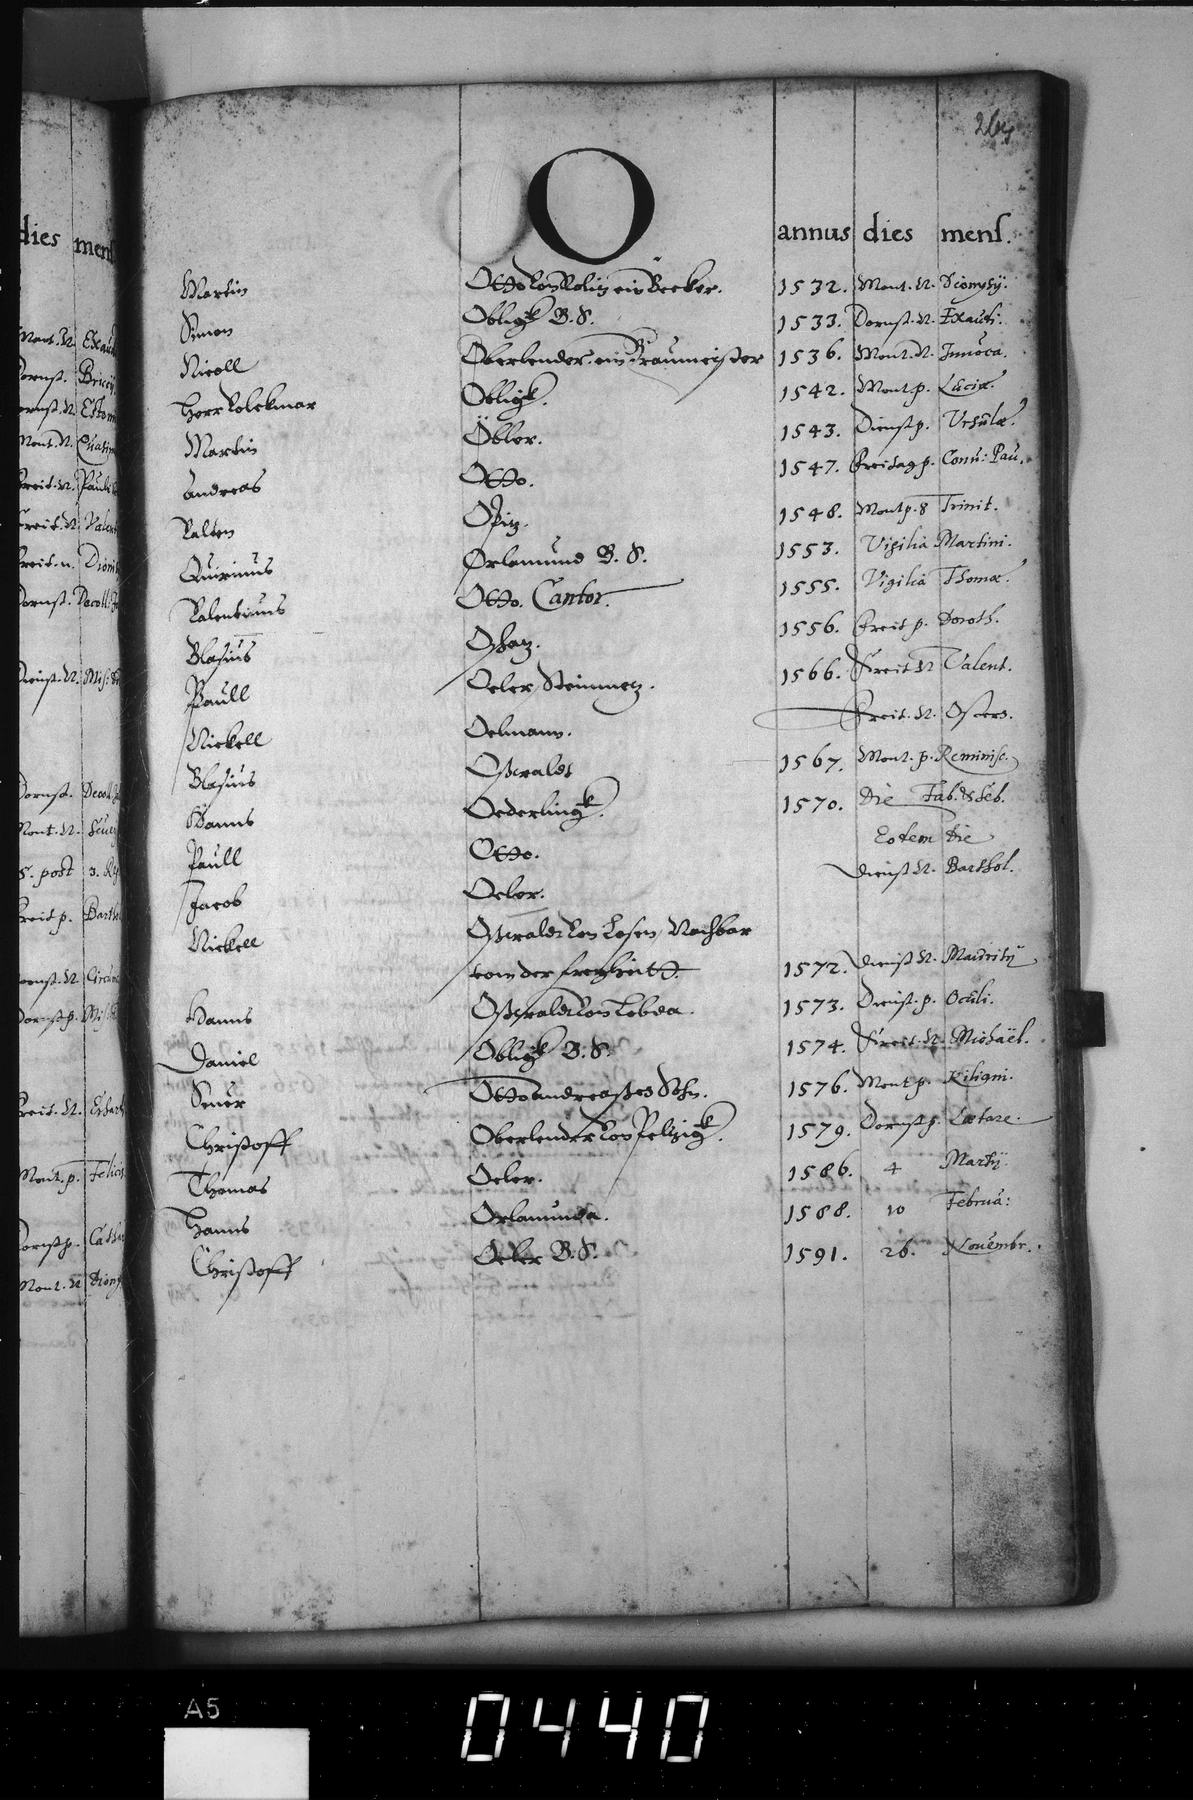 O
annus dies mens.
Martin Otto von Kolin ein Becker. 1532. Mont. N. Dionysÿ.
Simon Obligk B. S. 1533. Dornst. N. Exaudi.
Nicoll Oberlender ein Braumeister 1536. Mont. N. Innoca.
Herr Volckmar Obligk. 1542. Mont p. Luciæ.
Martin Öbler. 1543. Dienst p. Ursulæ.
Andreas Otto. 1547. Freitag p. Conu: Pau.
Valten Opitz. 1548. Mont p. 8 Trinit.
Quirinus Orlamund B. S. 1553. Vigilia Martini.
Valentinus Otto. Cantor. 1555. Vigilia Thomæ.
Blasius Oschatz. 1556. Freit p. Doroth.
Paull Oeler Steinmetz. 1566. Freit N Valent.
Nickell Oelmann. Freit. N. Ostern.
Blasius Osswaldt 1567. Mont. p. Reminisc.
Hanns Oederlingk. 1570. Die Fab. & Seb.
Paull Otto. Eodem Die
Jacob Oeler. Dienst N. Barthol.
Nickell Osswaldt von Losen, Nachbar
von der Freyheitt. 1572. Dienst N. Mauritÿ
Hanns Osswaldt von Lobda. 1573. Dienst. p. Oculi.
Daniel Obligk B. S. 1574. Freit. N. Michäel.
Seuer Otto Andreasses Sohn. 1576. Mont p. Kiligni.
Christoff Oberlender von Peltzigk. 1579. Dornst p. Lætare.
Thomas Oeler. 1586. 4 Martÿ.
Hanns Orlamunda. 1588. 10 Februa:
Christoff Oeler B. S. 1591. 26. Nouembr.
A5
0440